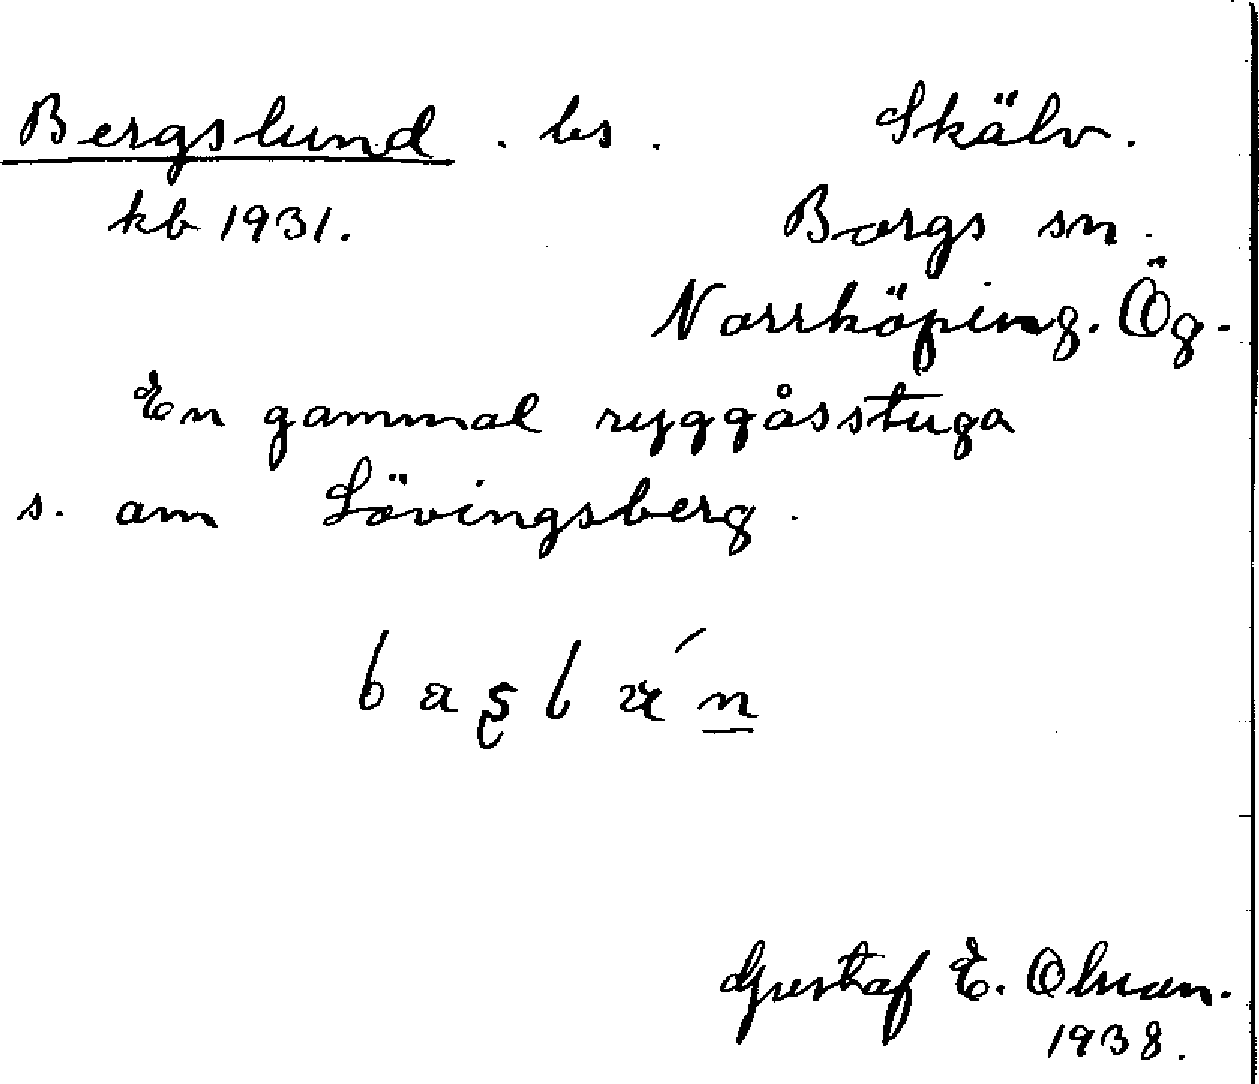 Bergslund . ls . Skälv.
kb 1931. Borgs sn.
Norrköping. Ög.
En gammal ryggåsstuga
s. om Lövingsberg.
Gustaf E. Olsson.
1938.